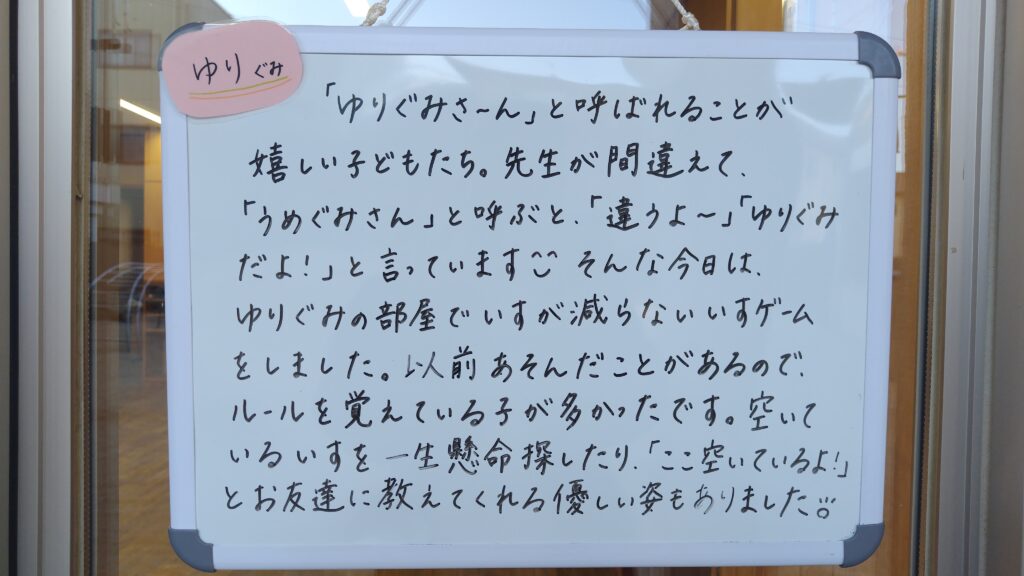 ゆり ぐみ
「ゆりぐみさ～ん」と呼ばれることが
嬉しい子どもたち。先生が間違えて、
「うめぐみさん」と呼ぶと、「違うよ～」「ゆりぐみ
だよ!」と言っています そんな今日は、
ゆりぐみの部屋でいすが減らないいすゲーム
をしました。以前あそんだことがあるので、
ルールを覚えている子が多かったです。空いて
いるいすを一生懸命探したり、「ここ空いているよ!」
とお友達に教えてくれる優しい姿もありました